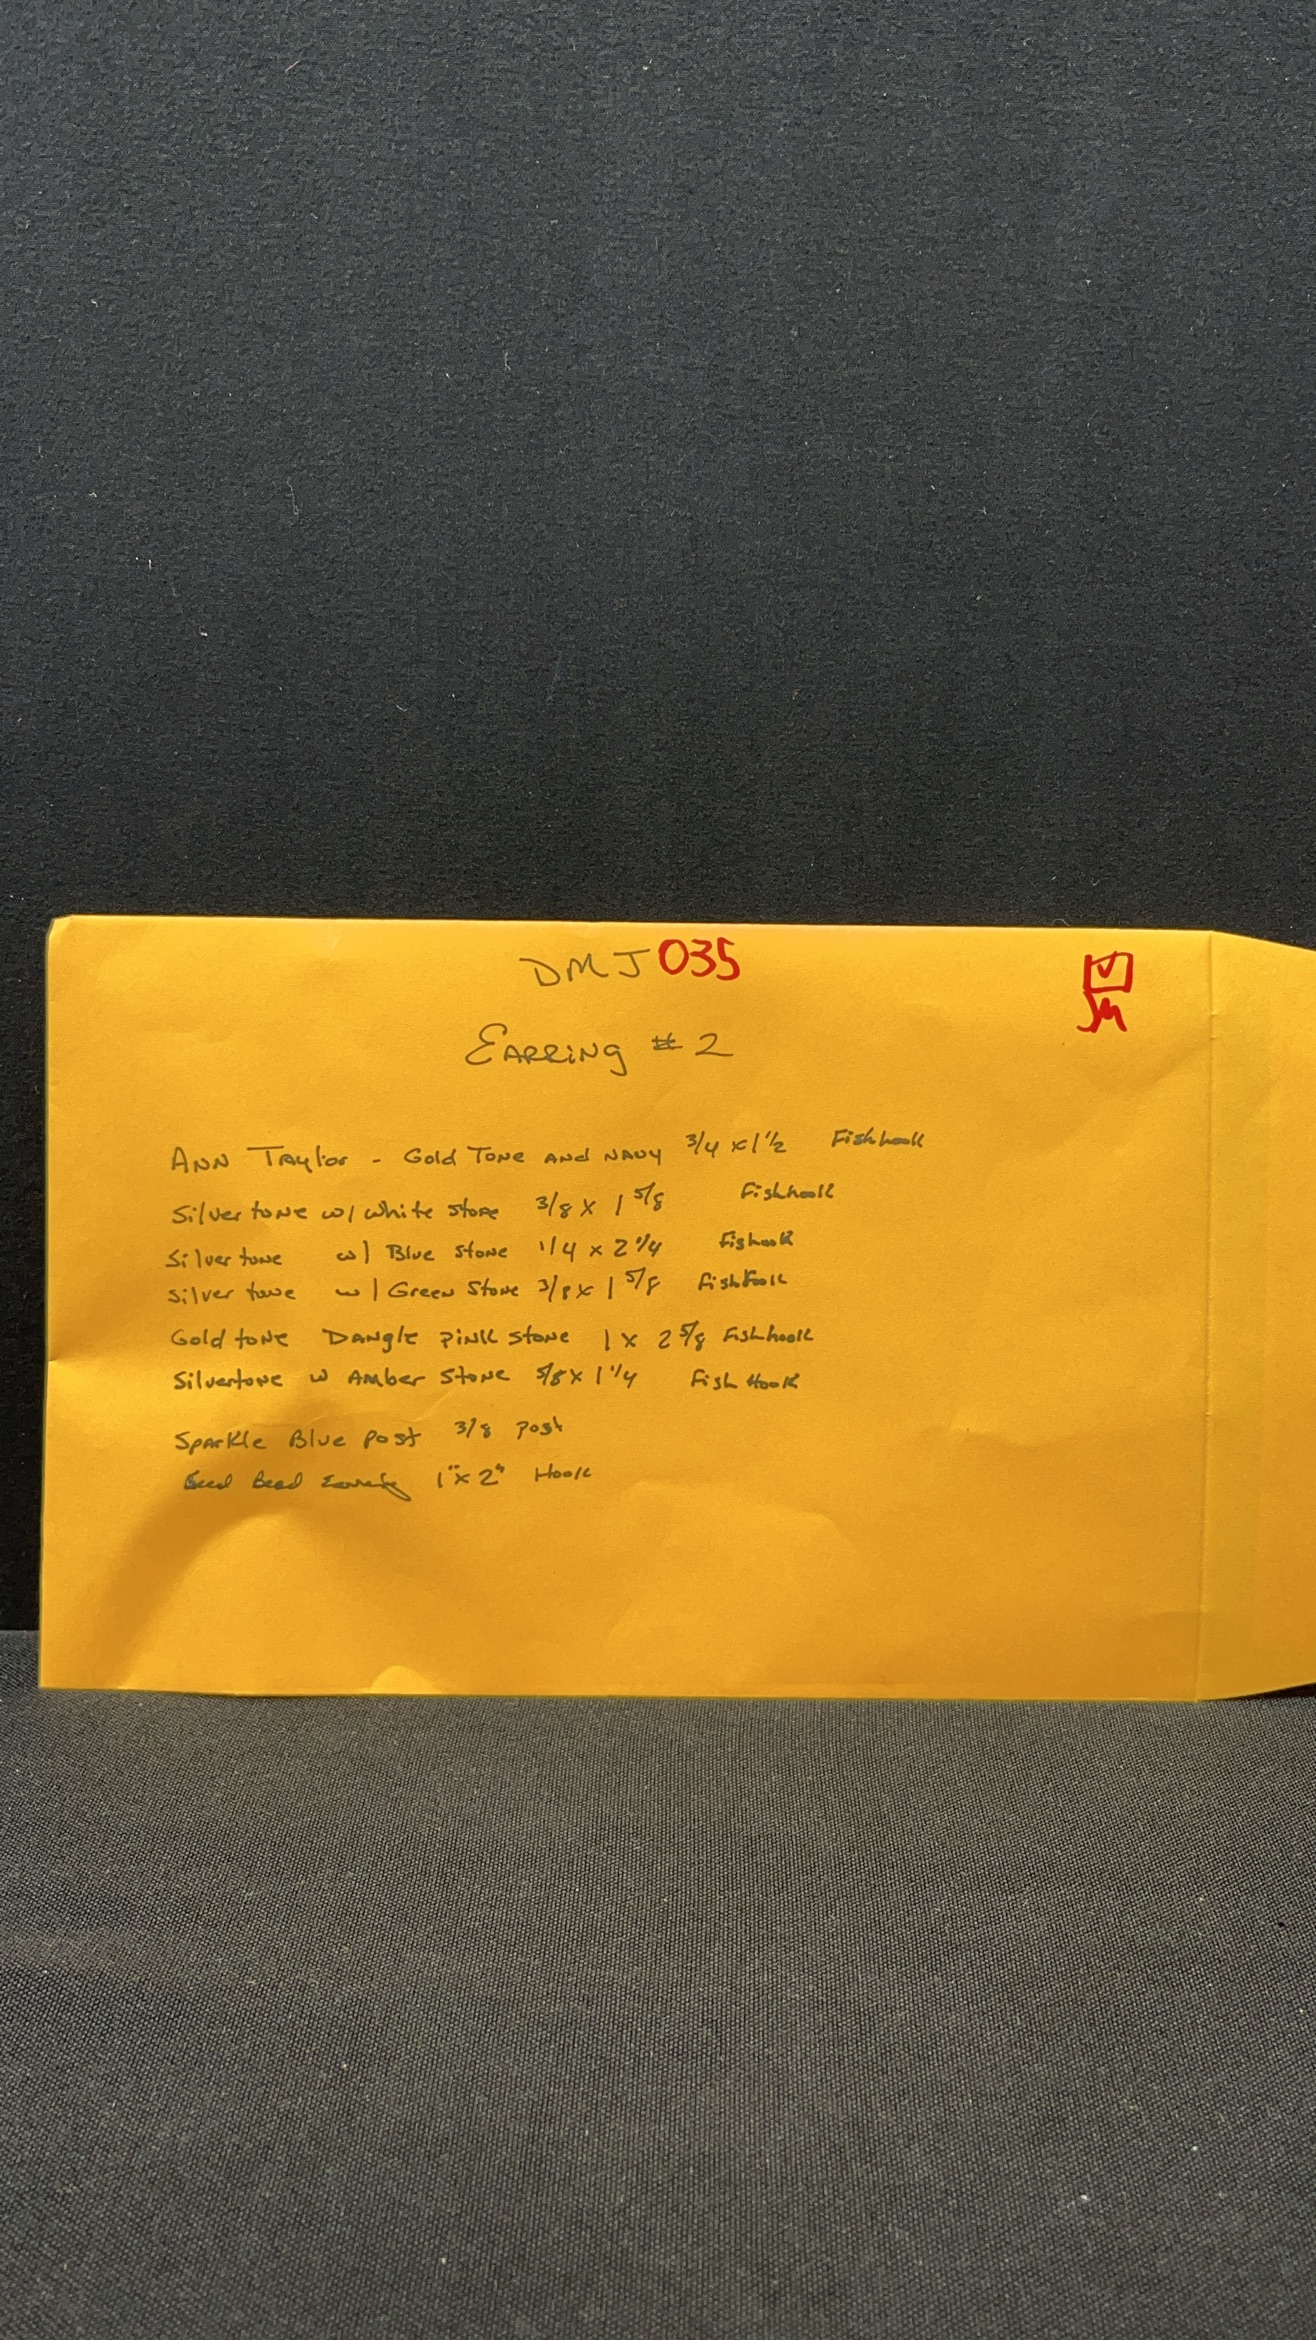 DMJ 035
JM
EARRING # 2
ANN TAYlor - Gold Tone and NAVY 3/4 x 1 1/2 Fishhook
Silvertone w/ white stone 3/8 x 1 5/8 Fishhook
Silvertone w/ Blue Stone 1/4 x 2 1/4 Fishook
Silvertone w/ Green Stone 3/8 x 1 5/8 Fishhook
Gold tone Dangle pink stone 1 x 2 5/8 Fishhook
Silvertone w Amber Stone 5/8 x 1 1/4 Fish Hook
Sparkle Blue post 3/8 post
Seed Bead Earring 1" x 2" Hook